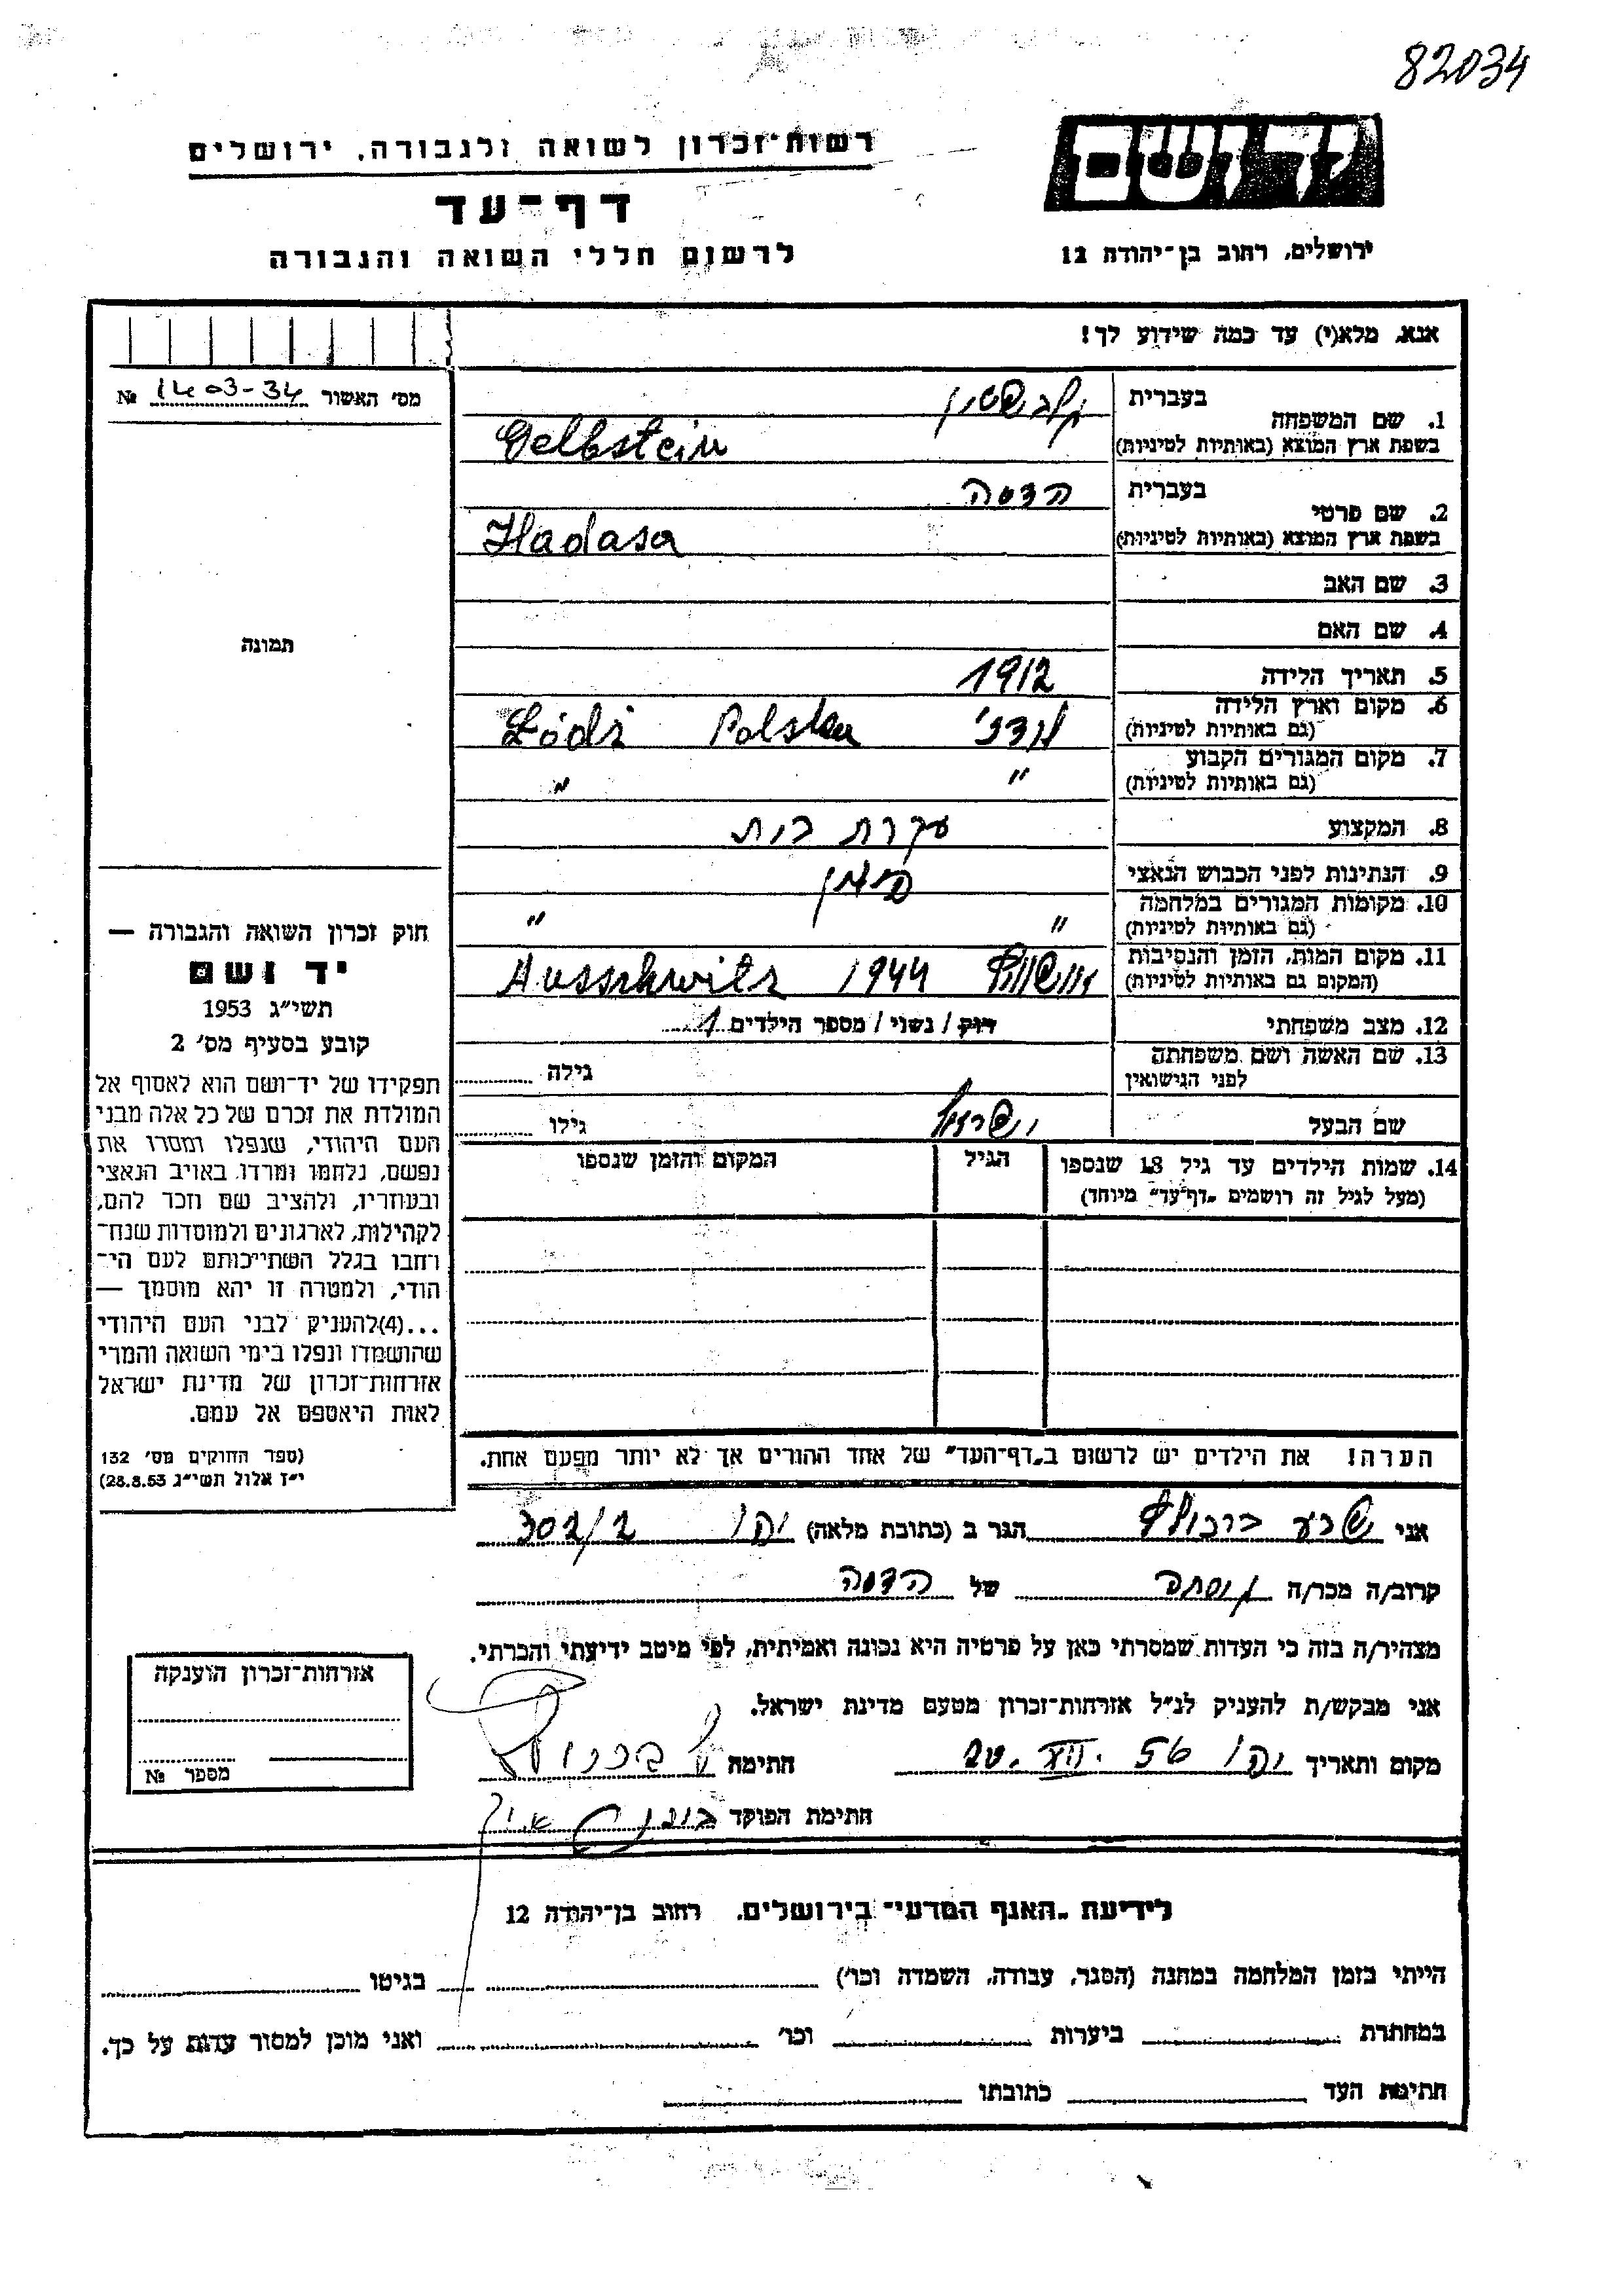 82034
יד ושם
רשות-זכרון לשואה ולגבורה, ירושלים
דף-עד
ירושלים, רחוב בן-יהודה 12
לרשום חללי השואה והגבורה
אנא, מלא(י) עד כמה שידוע לך!
מס' האשור 1403-34 №
1. שם המשפחה
בעברית גלבשטין
בשפת ארץ המוצא (באותיות לטיניות) Gelbstein
2. שם פרטי
בעברית הדסה
בשפת ארץ המוצא (באותיות לטיניות) Hadasa
3. שם האב
4. שם האם
תמונה
5. תאריך הלידה 1912
6. מקום וארץ הלידה
(גם באותיות לטיניות) לודז' Polska Łódź
7. מקום המגורים הקבוע
(גם באותיות לטיניות) " "
8. המקצוע עקרת בית
9. הנתינות לפני הכבוש הנאצי
10. מקומות המגורים במלחמה
(גם באותיות לטיניות) " "
11. מקום המות, הזמן והנסיבות
(המקום גם באותיות לטיניות) אושוויץ 1944 Ausschwits
12. מצב משפחתי רוק / נשוי / מספר הילדים 1
13. שם האשה ושם משפחתה
לפני הנישואין גילה
שם הבעל ישראל גילו
14. שמות הילדים עד גיל 18 שנספו הגיל המקום והזמן שנספו
(מעל לגיל זה רושמים "דף-עד" מיוחד)
חוק זכרון השואה והגבורה —
יד ושם
תשי"ג 1953
קובע בסעיף מס' 2
תפקידו של יד-ושם הוא לאסוף אל
המולדת את זכרם של כל אלה מבני
העם היהודי, שנפלו ומסרו את
נפשם, נלחמו ומרדו באויב הנאצי
ובעוזריו, ולהציב שם וזכר להם,
לקהילות, לארגונים ולמוסדות שנח-
רחבו בגלל השתייכותם לעם הי-
הודי, ולמטרה זו יהא מוסמך —
...(4)להעניק לבני העם היהודי
שהושמדו ונפלו בימי השואה והמרי
אזרחות-זכרון של מדינת ישראל
לאות היאספם אל עמם.
(ספר החוקים מס' 132
י"ז אלול תשי"ג 28.8.53)
הערה! את הילדים יש לרשום ב"דף-העד" של אחד ההורים אך לא יותר מפעם אחת.
אני הגר ב (כתובת מלאה) יפו 302/2
קרוב/ה מכר/ה גיסתה של הדסה
מצהיר/ה בזה כי העדות שמסרתי כאן על פרטיה היא נכונה ואמיתית, לפי מיטב ידיעתי והכרתי.
אני מבקש/ת להעניק לנ"ל אזרחות-זכרון מטעם מדינת ישראל.
מקום ותאריך יפו 56 חתימה
חתימת הפוקד
אזרחות-זכרון הוענקה
מספר №
לידיעת "האגף המדעי" בירושלים, רחוב בן-יהודה 12
הייתי בזמן המלחמה במחנה (הסגר, עבודה, השמדה וכו') בגיטו
במחתרת ביערות וכו' ואני מוכן למסור עדות על כך.
חתימת העד כתובתו